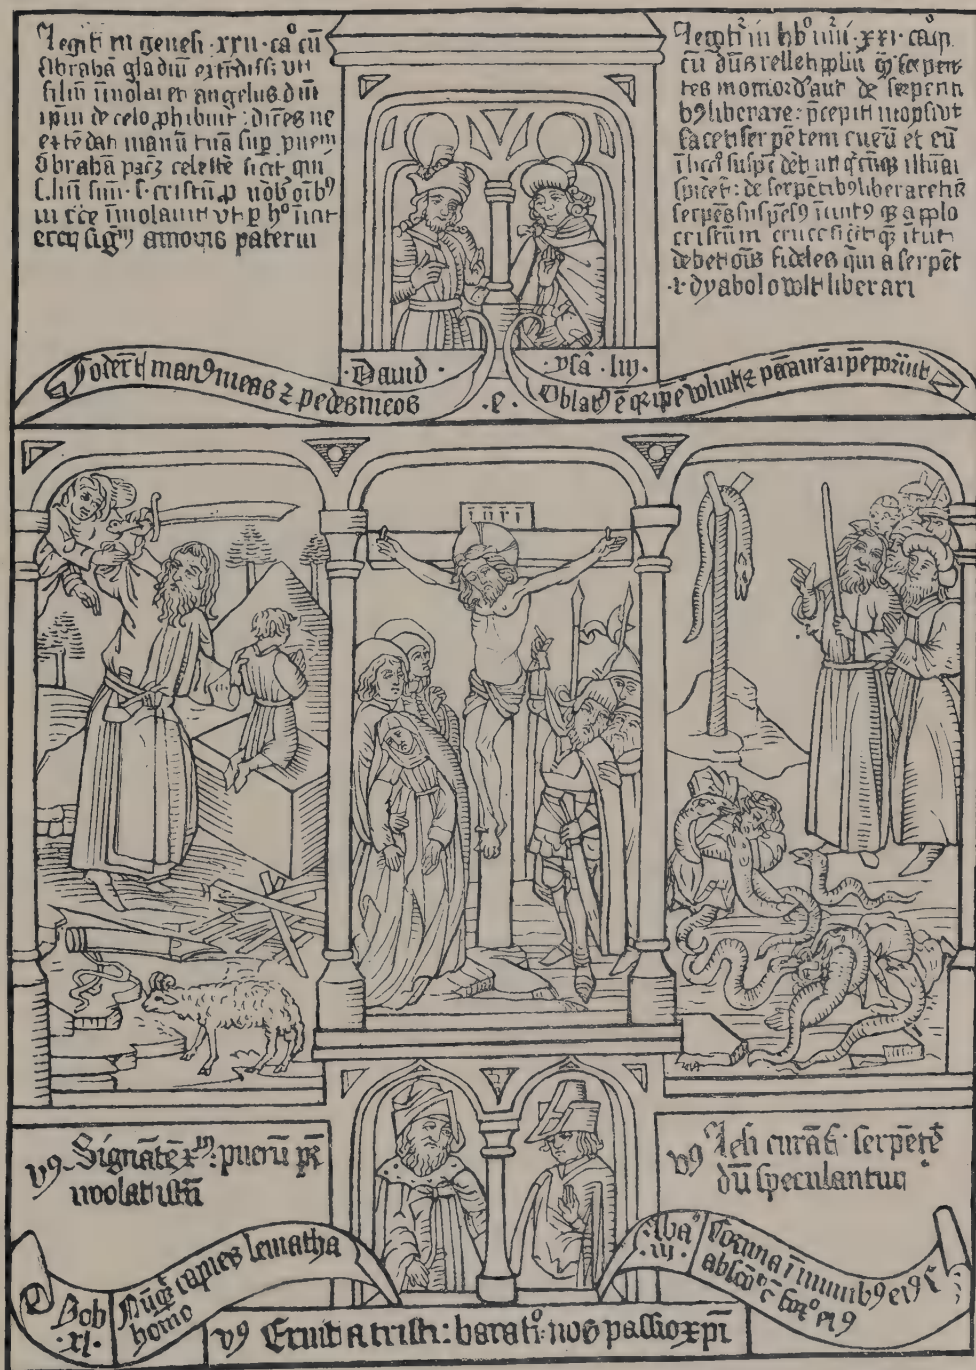 Legit in genesi · xxii · ca° cū
Abrahā gladiū extēdiss; vt
filiū īmolaret angelus dñi
ipm̄ de celo phibuit : dicēs ne
extēdat manū tuā sup puerū
Abrahā patrē celestē sigt qui
filiū suū · s · cristū p nob oībꝰ
in cͨe īmolauit vt p h° īnt
sigͫ amoris paterni
Legit in lib° iiii xxi cap
cū dūs vellet pplm̄ q̄ serpen
tes momord'aut de serpenti
bꝰ liberare : p̄cepit moysi vt
facet serpētem eneū et eū
ī lico suspēdet vt q̄cūq illum
īspicet : de serpētibꝰ liberaret
serpēs suspēsꝰ īntꝰ a pplo
cristum cruce sigt q̄ ītut
debet oīs fideles qui a serpēt
· i · dyabolo vult liberari
· Dauid ·
· ysa · liij ·
Foderūt manꝰ meas ⁊ pedes meos
· e ·
Oblatꝰ ē q̄ ipē voluit ⁊ pcc̄a nr̄a ipē portauit
i n r i
vꝰ Signātē xͫ : puerū pr̄
īmolat istū
vꝰ Lesi curāt · serpētē
dū speculantur
Job
· xl ·
Nūqͥ capies leuiatha
homo
Aba°
· iij ·
Cornua ī manibꝰ eiꝰ ī
abscō ē fort° eiꝰ
vꝰ Eruit a tristi : barat° : nos passio xp̄i